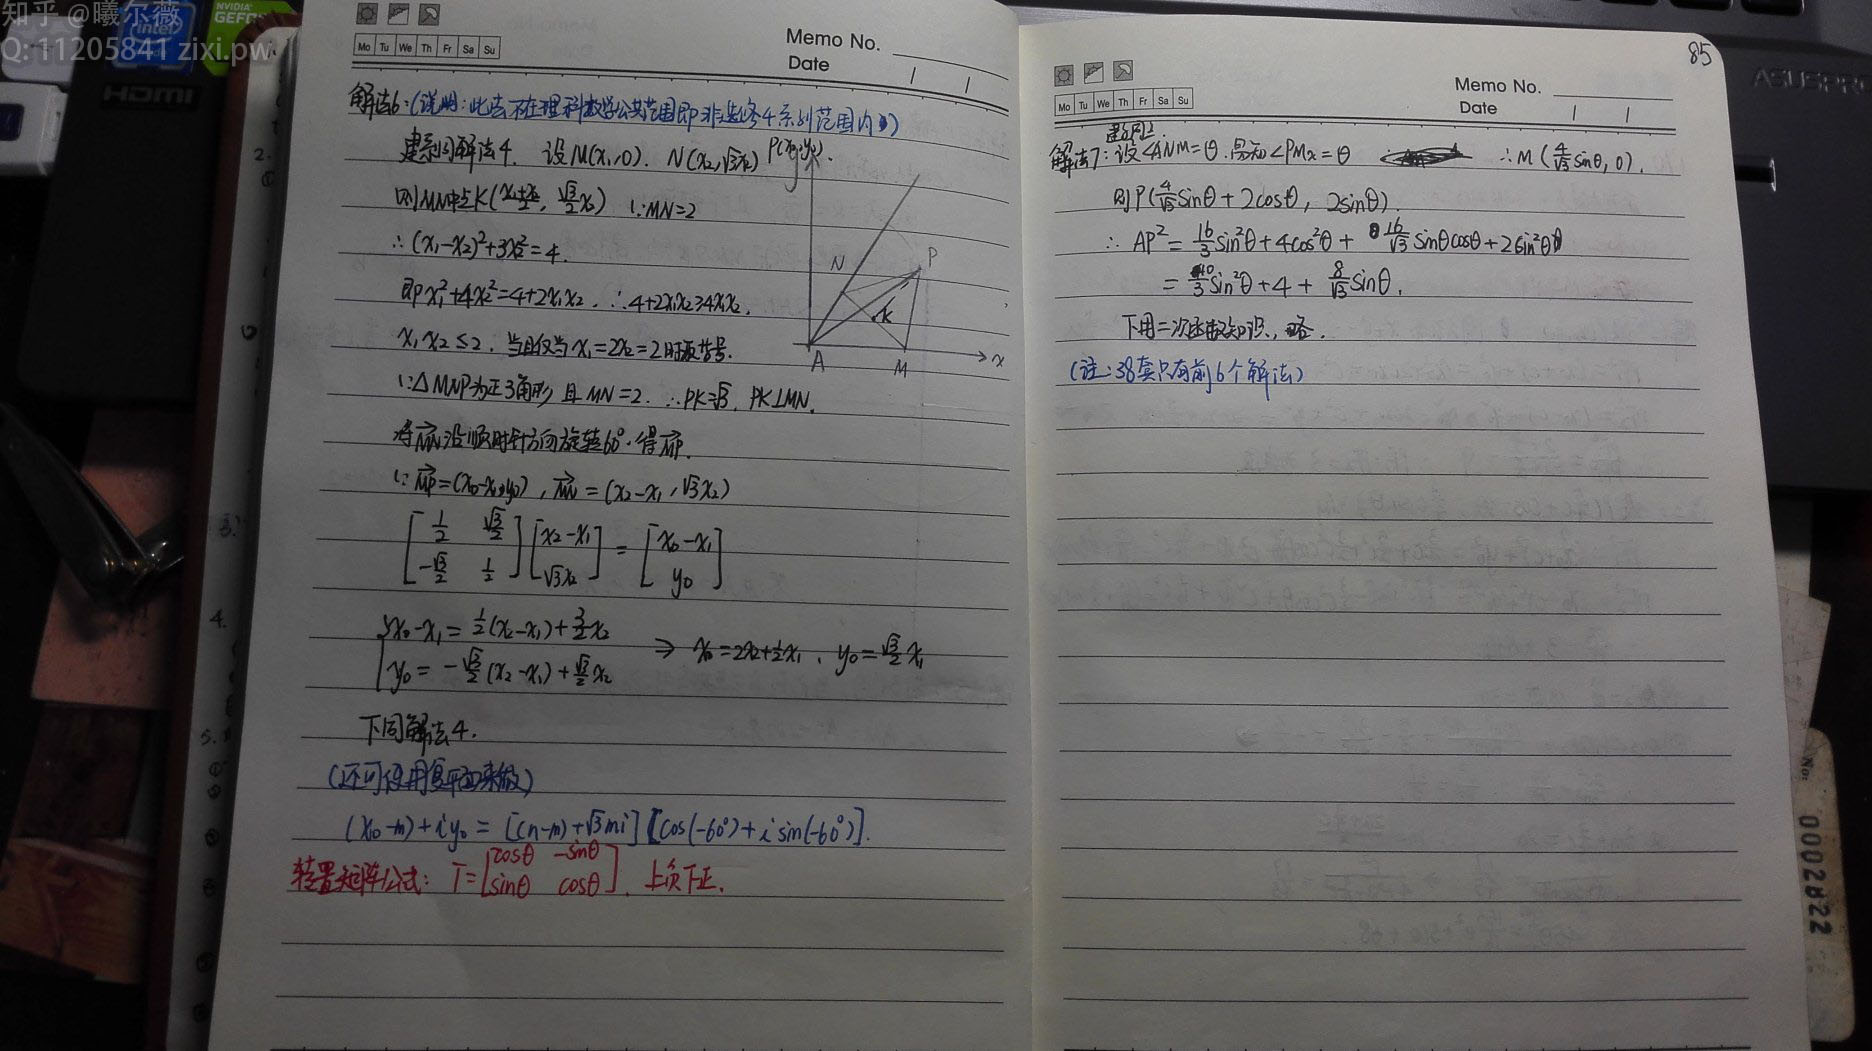 知乎 @曦尔薇
Q: 11205841 zixi.pw
NVIDIA
GEFO
intel
HDMI
ASUSPRO
Mo Tu We Th Fr Sa Su
Memo No.
Date / /
解法6:(说明:此法不在理科数学公共范围即非选修4系列范围内)
建系同解法4. 设M(x₁,0). N(x₂,√3x₂) P(x₀,y₀).
则MN中点K(x₁+x₂/2, √3/2 x₂) ∵MN=2
∴(x₁-x₂)²+3x₂²=4.
即x₁²+4x₂²=4+2x₁x₂. ∴4+2x₁x₂≥4x₁x₂.
x₁x₂≤2. 当且仅当x₁=2x₂=2时取等号.
∵△MNP为正3角形 且MN=2. ∴PK=√3. PK⊥MN.
将MN沿顺时针方向旋转60°.得MP.
∵MP=(x₀-x₁,y₀), MN=(x₂-x₁,√3x₂)
[1/2 √3/2; -√3/2 1/2][x₂-x₁; √3x₂]=[x₀-x₁; y₀]
{x₀-x₁=1/2(x₂-x₁)+3/2x₂
y₀=-√3/2(x₂-x₁)+√3/2x₂ ⇒ x₀=2x₂+1/2x₁. y₀=√3/2x₁
下同解法4.
(还可使用复平面来做)
(x₀-m)+iy₀=[(n-m)+√3ni][cos(-60°)+i sin(-60°)].
转置矩阵公式: T=[cosθ -sinθ; sinθ cosθ]. 上负下正.
y
N
P
K
A
M
x
85
Mo Tu We Th Fr Sa Su
Memo No.
Date / /
解法7:设∠ANM=θ.易知∠PMx=θ ∴M(4/√3 sinθ,0).
则P(4/√3 sinθ+2cosθ, 2sinθ).
∴AP²=16/3 sin²θ+4cos²θ+16/√3 sinθcosθ+2sin²θ
=10/3 sin²θ+4+8/√3 sinθ.
下用二次函数知识,略.
(注:38套只有前6个解法)
No:
0002822
2.
3.
4.
5.